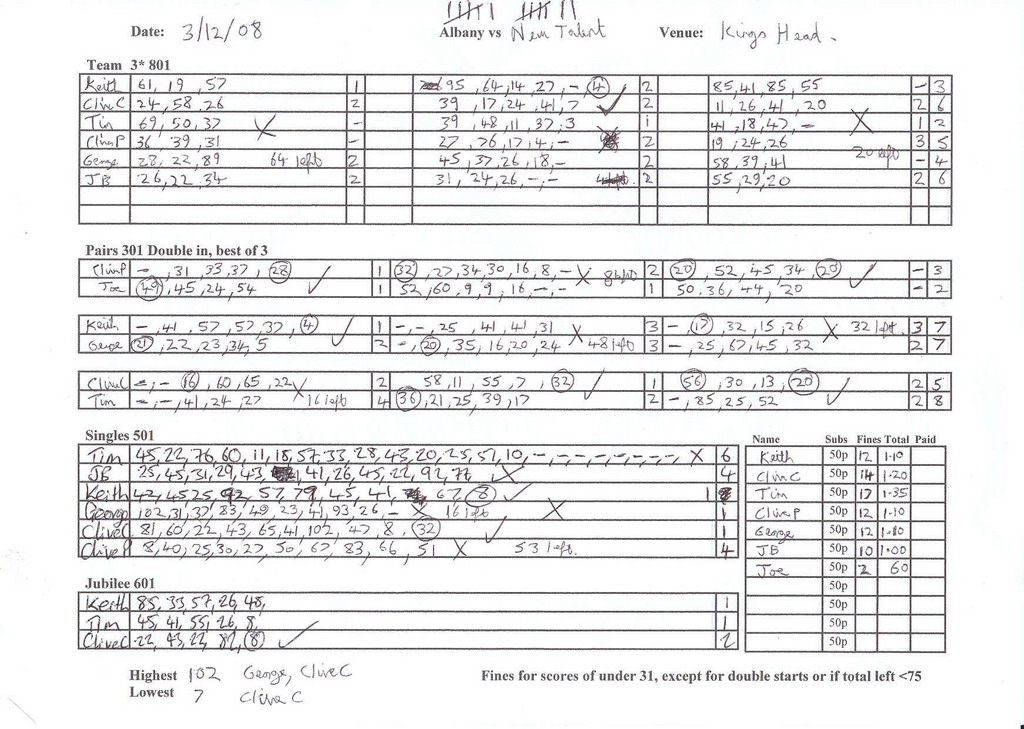 Date: 3/12/08 Albany vs New Talent Venue: Kings Head.
Team 3* 801
Keith 61, 19, 57 1 95, 64, 14, 27, -, 4 2 85, 41, 85, 55 - 3
CliveC 24, 58, 26 2 39, 17, 24, 41, 7 ✓ 2 11, 26, 41, 20 2 6
Tim 69, 50, 37 X - 39, 48, 11, 37, 3 1 41, 18, 47, - X 1 2
CliveP 36, 39, 31 - 27, 76, 17, 4 2 19, 24, 26 20 left 3 5
George 28, 22, 89 64 left 2 45, 37, 26, 18, - 2 58, 39, 41 - 4
JB 26, 22, 34 2 31, 24, 26, -, - 2 55, 29, 20 2 6
Pairs 301 Double in, best of 3
CliveP -, 31, 33, 37, 28 1 32, 27, 34, 30, 16, 8, - X 8 left 2 20, 52, 45, 34, 20 ✓ - 3
Joe 49, 45, 24, 54 ✓ 1 52, 60, 9, 9, 16, -, - 1 50, 36, 44, 20 - 2
Keith -, 41, 57, 57, 37, 4 ✓ 1 -, -, 25, 41, 41, 31 X 3 -, 17, 32, 15, 26 X 32 left 3 7
George 21, 22, 23, 34, 5 2 -, 20, 35, 16, 20, 24 48 left 3 -, 25, 67, 45, 32 2 7
CliveC -, -, 16, 60, 65, 22 X 2 58, 11, 55, 7, 32 ✓ 1 56, 30, 13, 20 ✓ 2 5
Tim -, -, 41, 24, 27 16 left 4 36, 21, 25, 39, 17 2 -, 85, 25, 52 2 8
Singles 501
Tim 45, 22, 76, 60, 11, 18, 57, 33, 28, 43, 20, 25, 51, 10, -, -, -, -, -, -, -, - X 6
JB 25, 45, 31, 29, 43, 41, 26, 45, 22, 92, 77 X 4
Keith 42, 45, 25, 92, 57, 79, 45, 41, 67, 8 ✓ 1
George 102, 31, 37, 83, 49, 23, 41, 93, 26, - X 16 left X 1
CliveC 81, 60, 22, 43, 65, 41, 102, 47, 8, 32 ✓ 1
CliveP 8, 40, 25, 30, 27, 50, 67, 83, 66, 51 X 53 left. 4
Name Subs Fines Total Paid
Keith 50p 12 1.10
CliveC 50p 14 1.20
Tim 50p 17 1.35
CliveP 50p 12 1.10
George 50p 12 1.10
JB 50p 10 1.00
Joe 50p 2 60
50p
50p
50p
50p
Jubilee 601
Keith 85, 33, 57, 26, 48, 1
Tim 45, 41, 55, 26, 8, 1
CliveC 22, 43, 22, 82, 8 ✓ 2
Highest 102 George, CliveC
Lowest 7 Clive C
Fines for scores of under 31, except for double starts or if total left <75